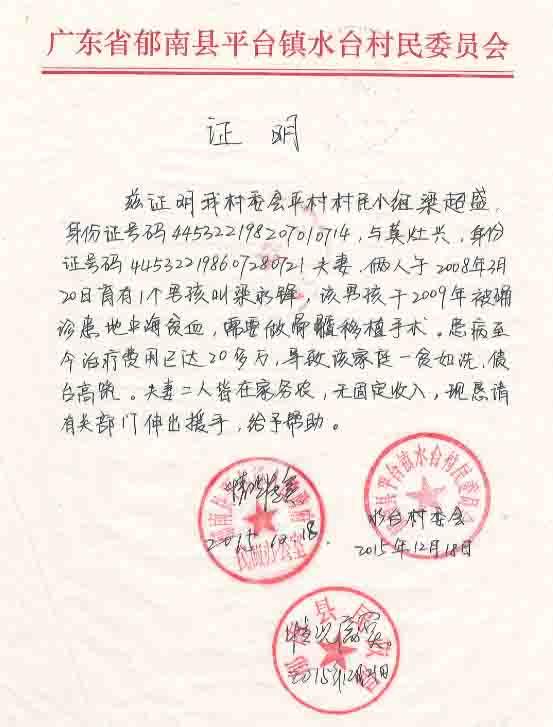 广东省郁南县平台镇水台村民委员会
证 明
兹证明我村委会平村村民小组梁超盛,
身份证号码445322198207010714,与莫灶兴,身份
证号码445322198607280721夫妻,俩人于2008年3月
20日育有1个男孩叫梁永锋,该男孩于2009年被确
诊患地中海贫血,需要做骨髓移植手术。患病至
今治疗费用已达20多万,导致该家庭一贫如洗,债
台高筑。夫妻二人皆在家务农,无固定收入,现恳请
有关部门伸出援手,给予帮助。
情况属实
水台村委会
2015年12月18日
情况属实。
2015年12月21日